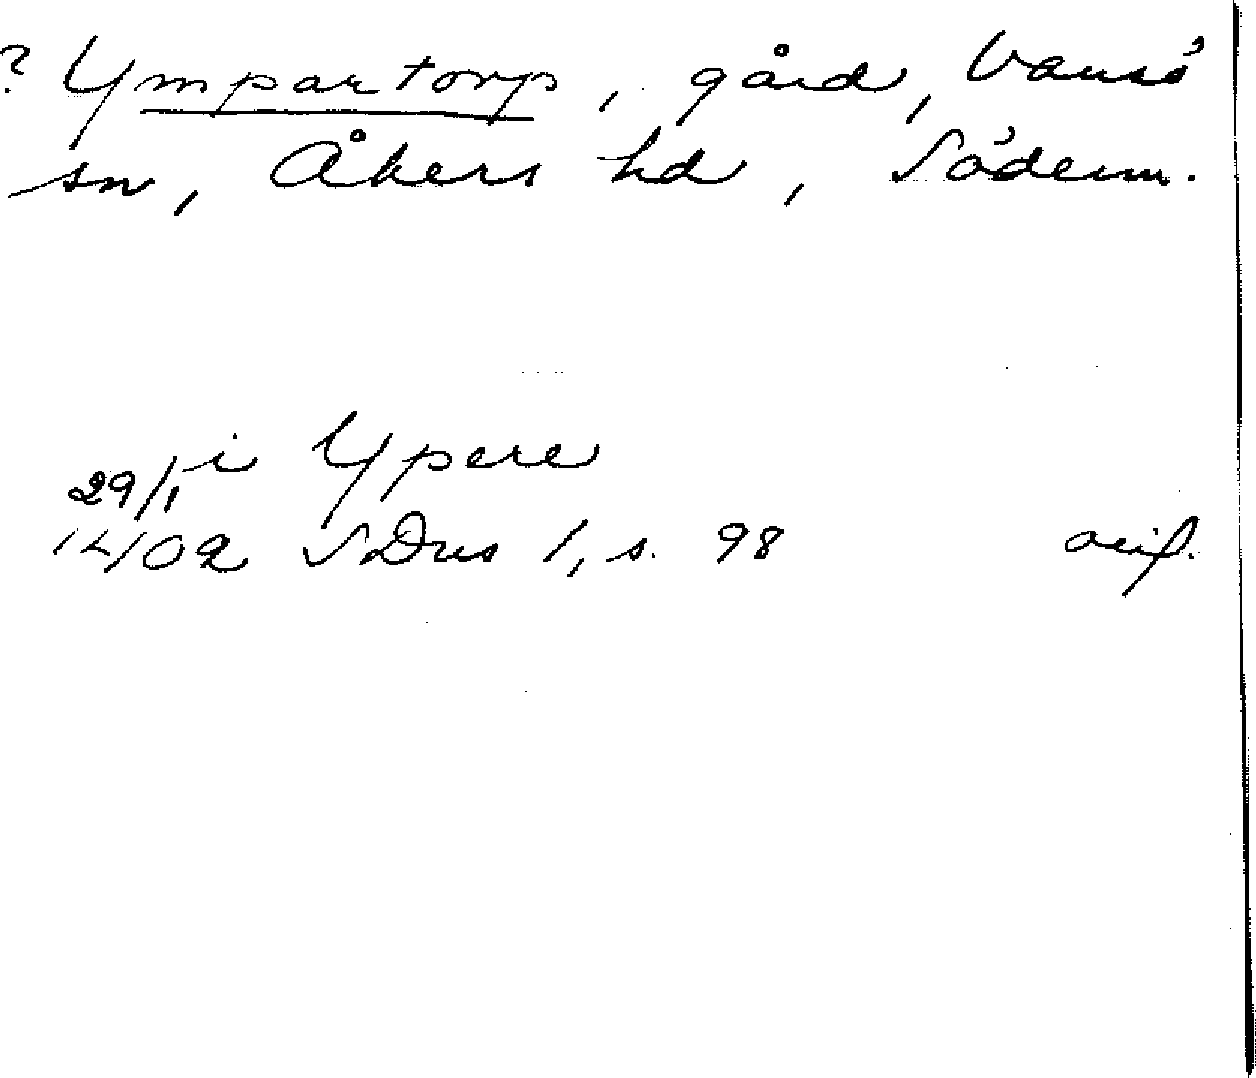 ? Ympartorp, gård, Vansö
sn, Åkers hd, Söderm.
29/1 i Ypere
1402 SDns 1, s. 98 orig.